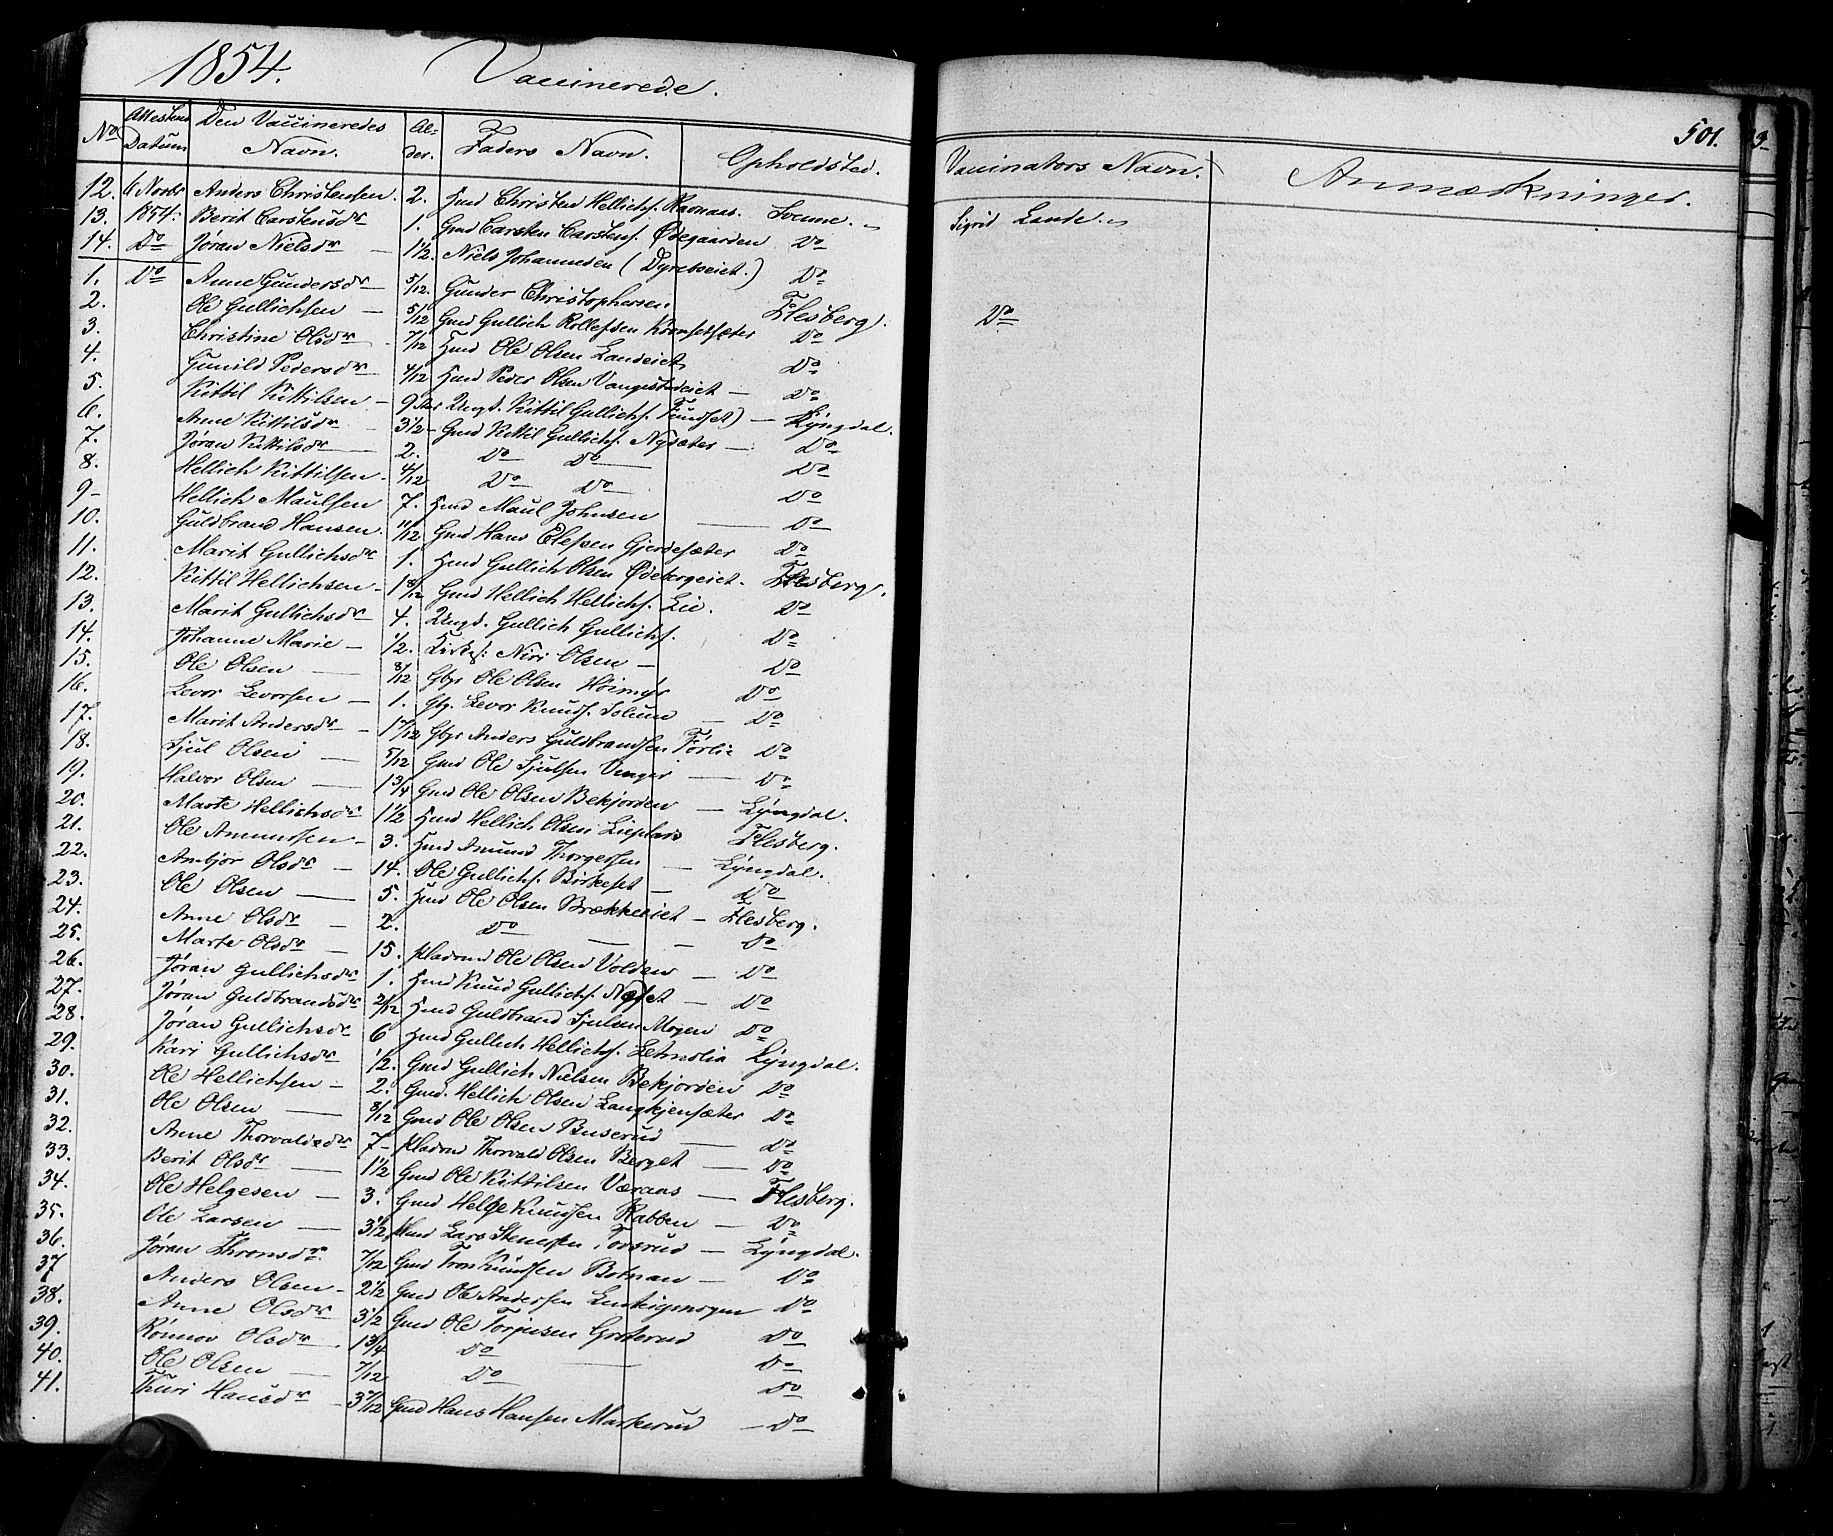 1854. Vaccinerede.
501.
No Attestens Datum Den Vaccineredes Navn. Alder. Faders Navn. Opholdsted. Vaccinators Navn. Anmærkninger.
12. 6 Novbr Anders Christensen. 2. Hmd Christen Hellichs. Ravnaas. Svenne. Sigrid Lande.
13. 1854. Berit Carstensdr 1. Gmd Carsten Carstens. Ødegaarden Do
14. Do Jøran Nielsdr — 1 1/2. Niels Johannesen (Dyreboeiet.) Do
1. Do Anne Gundersdr 5/12. Gunder Christophersen. Flesberg. Do
2. Ole Gullichsen — 5/12 Gmd Gullich Rollefsen Kramsetsæter Do
3. Christine Olsdr 7/12 Hmd Ole Olsen Landeiet Do
4. Gunild Pedersdr 4/12 Hmd Peder Olsen Vangestadeiet — Do
5. Kittil Kittilsen — 9 Ungk. Kittil Gullichs. Fundset) — Lyngdal.
6. Anne Kittilsdr 3 1/2 — Gmd Kittil Gullichs. Nysæter — Do
7. Jøran Kittilsdr 2. Do Do Do
8. Hellich Kittilsen — 4/12 Do Do Do
9 — Hellich Maulsen 7. Hmd Maul Johnsen — Do
10. Guldbrand Hansen. 11/12 Gmd Hans Elefsen Gjerdesæter Do
11. Marit Gullichsdr 1. Hmd Gullich Olsen Ødebergeiet. Flesberg.
12. Kittil Hellichsen — 1 8/12 Gmd Hellich Hellichs. Lie. Do
13. Marit Gullichsdr 4. Ungk. Gullich Gullichs. Do
14. Johanne Marie — 1/2. Niri Olsen — Do
15. Ole Olsen — 8/12 Gbr Ole Olsen Høimyr Do
16. Levor Levorsen — 1. Gbr. Levor Knuds. Solum — Do
17. Marit Andersdr — 1 7/12 Gbr Anders Guldbrandsen Førlie Do
18. Sjul Olsen — 5/12 Gmd Ole Sjulsen Venger — Do
19. Halvor Olsen — 1 3/4 Gmd Ole Olsen Bekjorden — Lyngdal.
20. Marte Hellichsdr 1 1/2 Hmd Hellich Olsen Lieplads Flesberg.
21. Ole Amundsen — 3. Hmd Amund Thorgersen — Lyngdal.
22. Ambjør Olsdr — 14. Ole Gullichs. Birkeset — Do
23. Ole Olsen — 5. Hmd Ole Olsen Brækkeeiet — Flesberg.
24. Anne Olsdr — 2. Do — — Do
25. Marte Olsdr — 15. Pladsmd Ole Olsen Volden — Do
26. Jøran Gullichsdr 1. Hmd Knud Gullichs. Næset — Do
27. Jøran Guldbrandsdr 2/12 Hmd Guldbrand Sjulsen Mogen Do
28. Jøran Gullichsdr 6 Hmd Gullich Hellichs. Letmolia Lyngdal.
29. Kari Gullichsdr 1/2. Gmd Gullich Nielsen Bekjorden Do
30. Ole Hellichsen — 2. Gmd. Hellich Olsen Langkjensæter Do
31. Ole Olsen — 8/12 Gmd Ole Olsen Buserud — Do
32. Anne Thorvaldsdr 7 — Pladsmd Thorvald Olsen Berget — Do
33. Berit Olsdr — 1 1/2 Gmd Ole Kittilsen Væraas — Flesberg.
34. Ole Helgesen — 3. Gmd Helge Knudsen Rabben — Do
35. Ole Larsen — 3 1/2 Hmd Lars Stensen Tovsrud — Lyngdal.
36. Jøran Thronsdr 7/12 Gmd Tron Knudsen Botnan — Do
37 Anders Olsen — 2 1/2 Gmd Ole Andersen Do
38. Anne Olsdr 3 1/2 Gmd Ole Torjusen Groterud Do
39. Rønnov Olsdr. 1 3/4 Do — Do
40. Ole Olsen — 7/12 Do Do
41. Thuri Hansdr — 3 7/12 Gmd Hans Hansen Markerud — Do